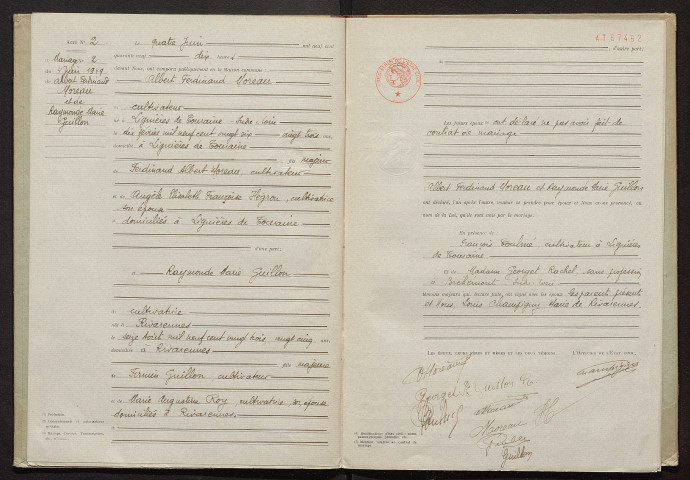 ACTE N° 2
Mariage 2
du 4 Juin 1949
Albert Ferdinand
Moreau
et de
Raymonde Marie
Guillon
Le quatre Juin mil neuf cent
quarante neuf dix heures
devant Nous, ont comparu publiquement en la Maison commune :
Albert Ferdinand Moreau
cultivateur
né à Lignières de Touraine Indre-Loire
le dix février mil neuf cent vingt six vingt trois ans,
domicilié à Lignières de Touraine
fils majeur
de Ferdinand Albert Moreau cultivateur
et de Angèle Elisabeth Françoise Hégron, cultivatrice
son épouse
domiciliés à Lignières de Touraine
d'une part ;
et Raymonde Marie Guillon
cultivatrice
née à Rivarennes
le seize Août mil neuf cent vingt trois, vingt cinq ans,
domiciliée à Rivarennes
fille majeure
de Firmin Guillon, cultivateur
et de Marie Augustine Roy, cultivatrice son épouse
domiciliés à Rivarennes.
AX 67462
d'autre part ;
Les futurs époux ont déclaré ne pas avoir fait de
contrat de mariage
Albert Ferdinand Moreau et Raymonde Marie Guillon
ont déclaré, l'un après l'autre, vouloir se prendre pour époux et Nous avons prononcé, au
nom de la Loi, qu'ils sont unis par le mariage.
En présence de
François cultivateur à Lignières
de Touraine
et de Madame Georget Rachel, sans profession
à Bréhémont Indre Loire
témoins majeurs qui, lecture faite, ont signé avec les époux, les parents présents
et nous, Louis Champigny Maire de Rivarennes.
L'Officier de l'État civil,
Moreau
Georget R Guillon
Moreau
Guillon